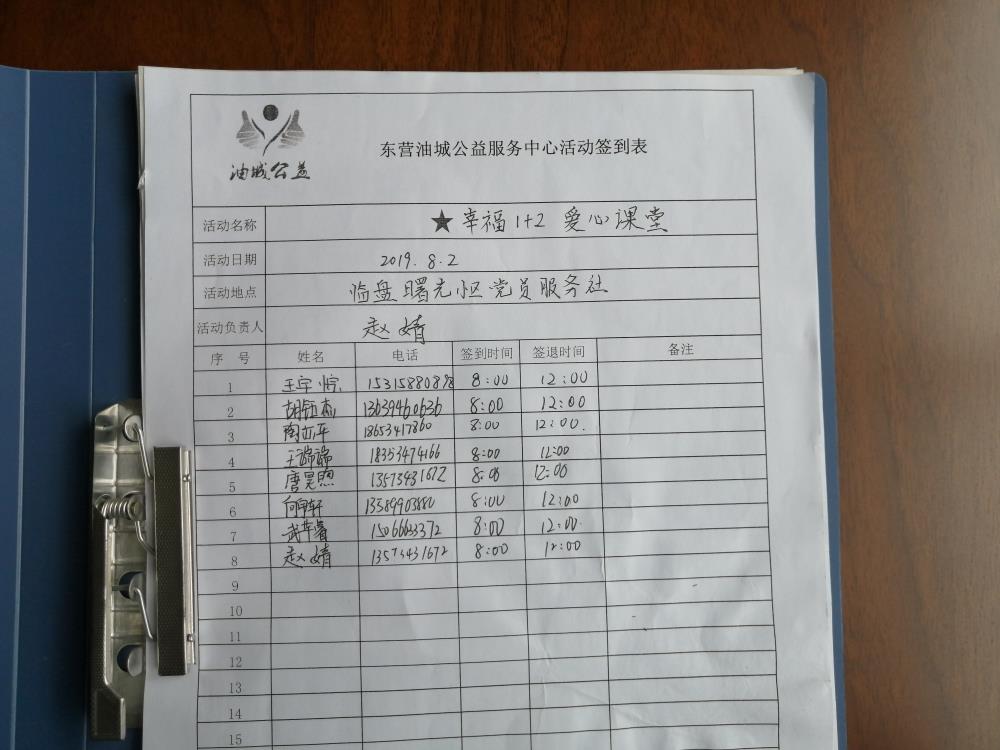 油城公益
东营油城公益服务中心活动签到表
活动名称 ★幸福1+2 爱心课堂
活动日期 2019.8.2
活动地点 临盘曙光小区党员服务社
活动负责人 赵婧
序号 姓名 电话 签到时间 签退时间 备注
1 王宇惊 15315880898 8:00 12:00
2 胡钰杰 13639460636 8:00 12:00
3 陶亦平 18653417860 8:00 12:00.
4 王端端 18353474166 8:00 12:00
5 唐昊煦 13573431672 8:00 12:00
6 13589903880 8:00 12:00
7 15066633372 8:00 12:00
8 赵婧 13573431672 8:00 12:00
9
10
11
12
13
14
15